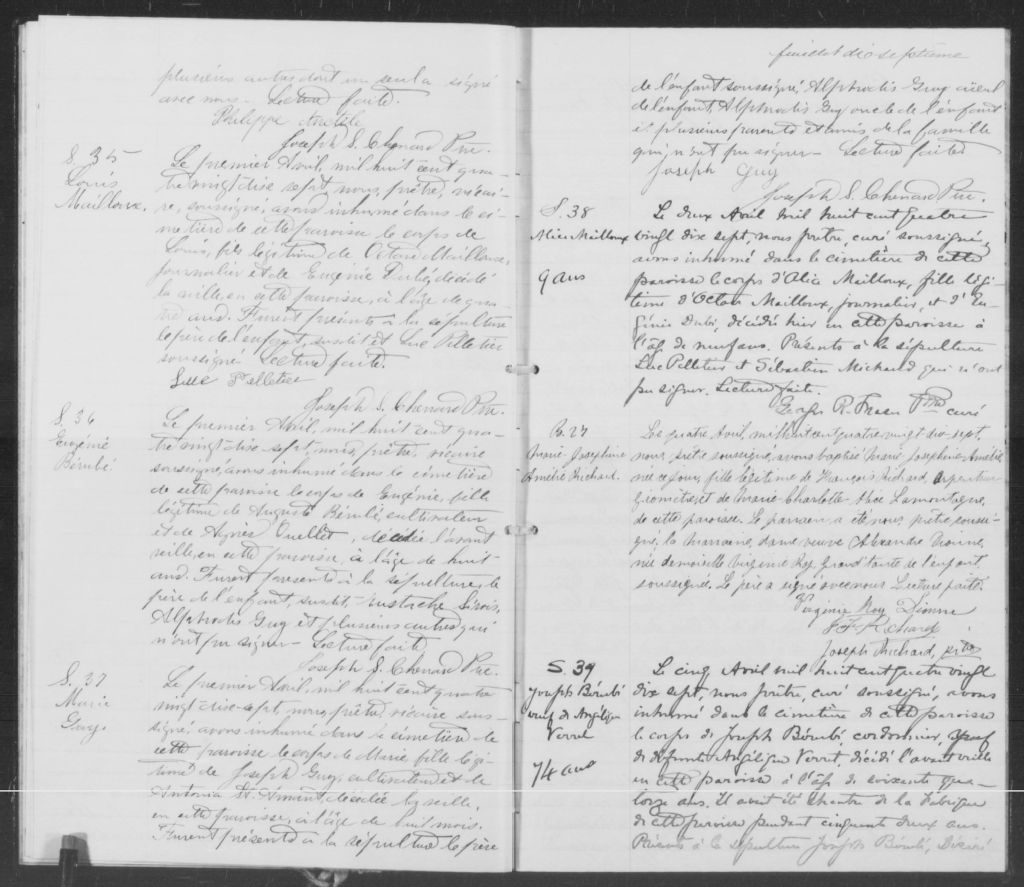 plusieurs autres dont un seul a signé
avec nous. Lecture faite.
Philippe
Joseph S. Chenard Ptre.
S. 35
Louis
Mailloux.
Le premier Avril, mil huit cent qua-
tre vingt dix sept, nous, prêtre, vicai-
re, soussigné, avons inhumé dans le ci-
metière de cette paroisse le corps de
Louis, fils légitime de Octave Mailloux,
journalier et de Eugénie Dubé, décédé
la veille, en cette paroisse, à l'âge de qua-
tre ans. Furent présents à la sépulture
le père de l'enfant, susdit et Luc Pelletier
soussigné. Lecture faite.
Luc Pelletier
Joseph S. Chenard Ptre.
S. 36
Eugénie
Bérubé
Le premier Avril, mil huit cent qua-
tre vingt dix sept, nous, prêtre, vicaire
soussigné, avons inhumé dans le cimetière
de cette paroisse le corps de Eugénie, fille
légitime de Auguste Bérubé, cultivateur
et de Agnès Ouellet, décédée l'avant
veille, en cette paroisse, à l'âge de huit
ans. Furent présents à la sépulture, le
père de l'enfant, susdit, Eustache Sirois,
Alphrodis Guy et plusieurs autres qui
n'ont pu signer. Lecture faite
Joseph S. Chenard Ptre.
S. 37
Marie
Guy
Le premier Avril, mil huit cent quatre
vingt dix-sept, nous, prêtre, vicaire sous-
signé, avons inhumé dans le cimetière de
cette paroisse le corps de Marie fille légi-
time de Joseph Guy, cultivateur et de
Antonia St. Amant, décédée la veille,
en cette paroisse, à l'âge de huit mois.
Furent présents à la sépulture le père
feuillet dix septième
de l'enfant soussigné, Alphrodis Guy aïeul
de l'enfant, Alphrodis Guy oncle de l'enfant
et plusieurs parents et amis de la famille
qui n'ont pu signer. Lecture faite
Joseph Guy
Joseph S. Chenard Ptre.
S. 38
Alice Mailloux
9 ans
Le deux Avril mil huit cent quatre
vingt dix sept, nous prêtre, curé soussigné,
avons inhumé dans le cimetière de cette
paroisse le corps d'Alice Mailloux, fille légi-
time d'Octave Mailloux, journalier, et d'Eu-
génie Dubé, décédée hier en cette paroisse à
l'âge de neuf ans. Présents à la sépulture
Luc Pelletier et Sébastien Michaud qui n'ont
pu signer. Lecture faite.
R. Fraser Ptre curé
B. 27
Marie Josephine
Amélie Richard.
Le quatre Avril, mil huit cent quatre vingt dix-sept,
nous, prêtre soussigné, avons baptisé Marie Josephine Amélie
née ce jour, fille légitime de François Richard, arpenteur
géomètre, et de Marie Charlotte Alice Lamontagne,
de cette paroisse. Le parrain a été nous, prêtre, soussi-
gné, la marraine, dame veuve Alexandre Dionne,
née demoiselle Virginie Roy, grand'tante de l'enfant
soussignée. Le père a signé avec nous. Lecture faite.
Virginie Roy Dionne
J. F. Richard
Joseph Richard, ptre
S. 39
Joseph Bérubé
veuf de Angélique
Verret
74 ans
Le cinq Avril mil huit cent quatre vingt
dix sept, nous prêtre, curé soussigné, avons
inhumé dans le cimetière de cette paroisse
le corps de Joseph Bérubé, cordonnier, époux
de défunte Angélique Verret, décédé l'avant veille
en cette paroisse à l'âge de soixante qua-
torze ans. Il avait été chantre de la Fabrique
de cette paroisse pendant cinquante deux ans.
Présents à la sépulture Joseph Bérubé, Désiré